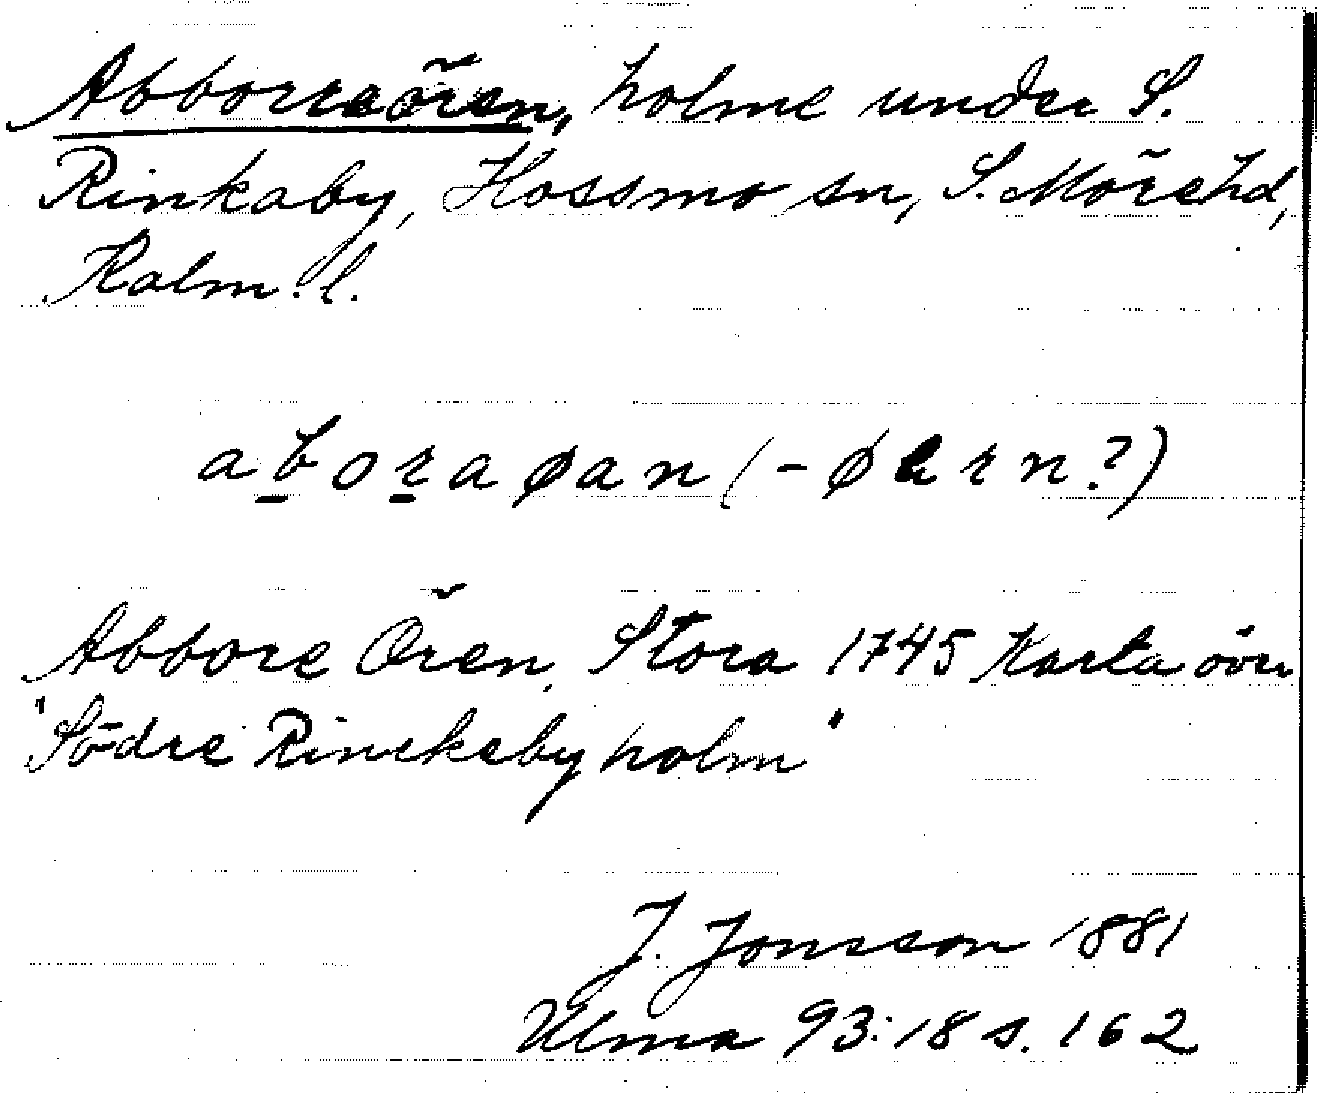 Abborreören, holme under S.
Rinkaby, Hossmo sn, S. Möre hd,
Kalm. l.
aboraøan (-øarn?)
Abbore Ören, Stora 1745 Karta över
"Södre Rinckeby holm"
J. Jonsson 1881
Ulma 93:18 s. 162